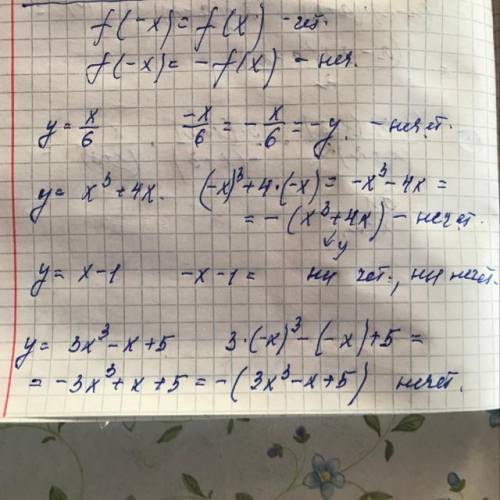 f(-x) = f(x) - чет.
f(-x) = -f(x) - неч.
y = x/6    -x/6 = -x/6 = -y. - нечет.
y = x³+4x.    (-x)³+4·(-x) = -x³-4x =
= -(x³+4x) - нечет.
↓y
y = x-1    -x-1 =    ни чет., ни нечет.
y = 3x³-x+5    3·(-x)³-(-x)+5 =
= -3x³+x+5 = -(3x³-x+5) нечет.